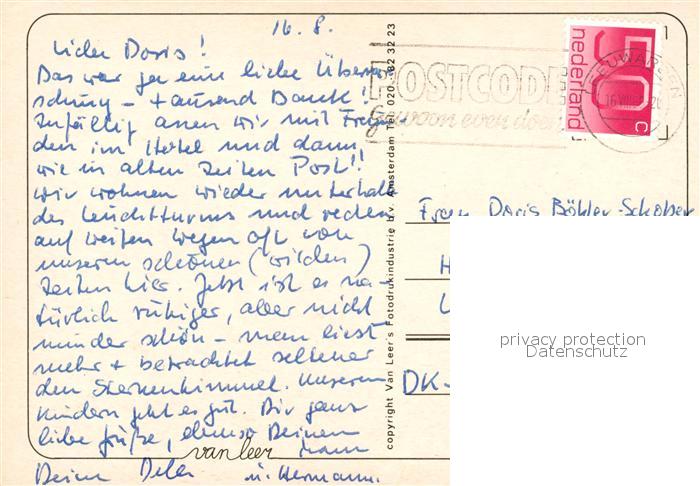 16. 8.
Liebe Doris!
Das war ja eine liebe Überra-
schung – tausend Dank!
Zufällig assen wir mit Freun-
den im Hotel und dann,
wie in alten Zeiten Post!!
Wir wohnen wieder unterhalb
des Leuchtturms und reden
auf weiten Wegen oft von
unseren schönen (wilden)
Zeiten hier. Jetzt ist es na-
türlich ruhiger, aber nicht
minder schön – man liest
mehr + betrachtet seltener
den Sternenhimmel. Unseren
Kindern geht es gut. Dir ganz
liebe Grüße, ebenso Deinem
Mann
Deine
u. Hermann.
van Leer
copyright Van Leer's Fotodrukindustrie b.v. Amsterdam Tel. 020-82 32 23
POSTCODE
gewoon even doen
LEEUWARDEN
16 VIII
nederland
50c
Frau Doris Böhler-Schober
H
DK-
privacy protection
Datenschutz